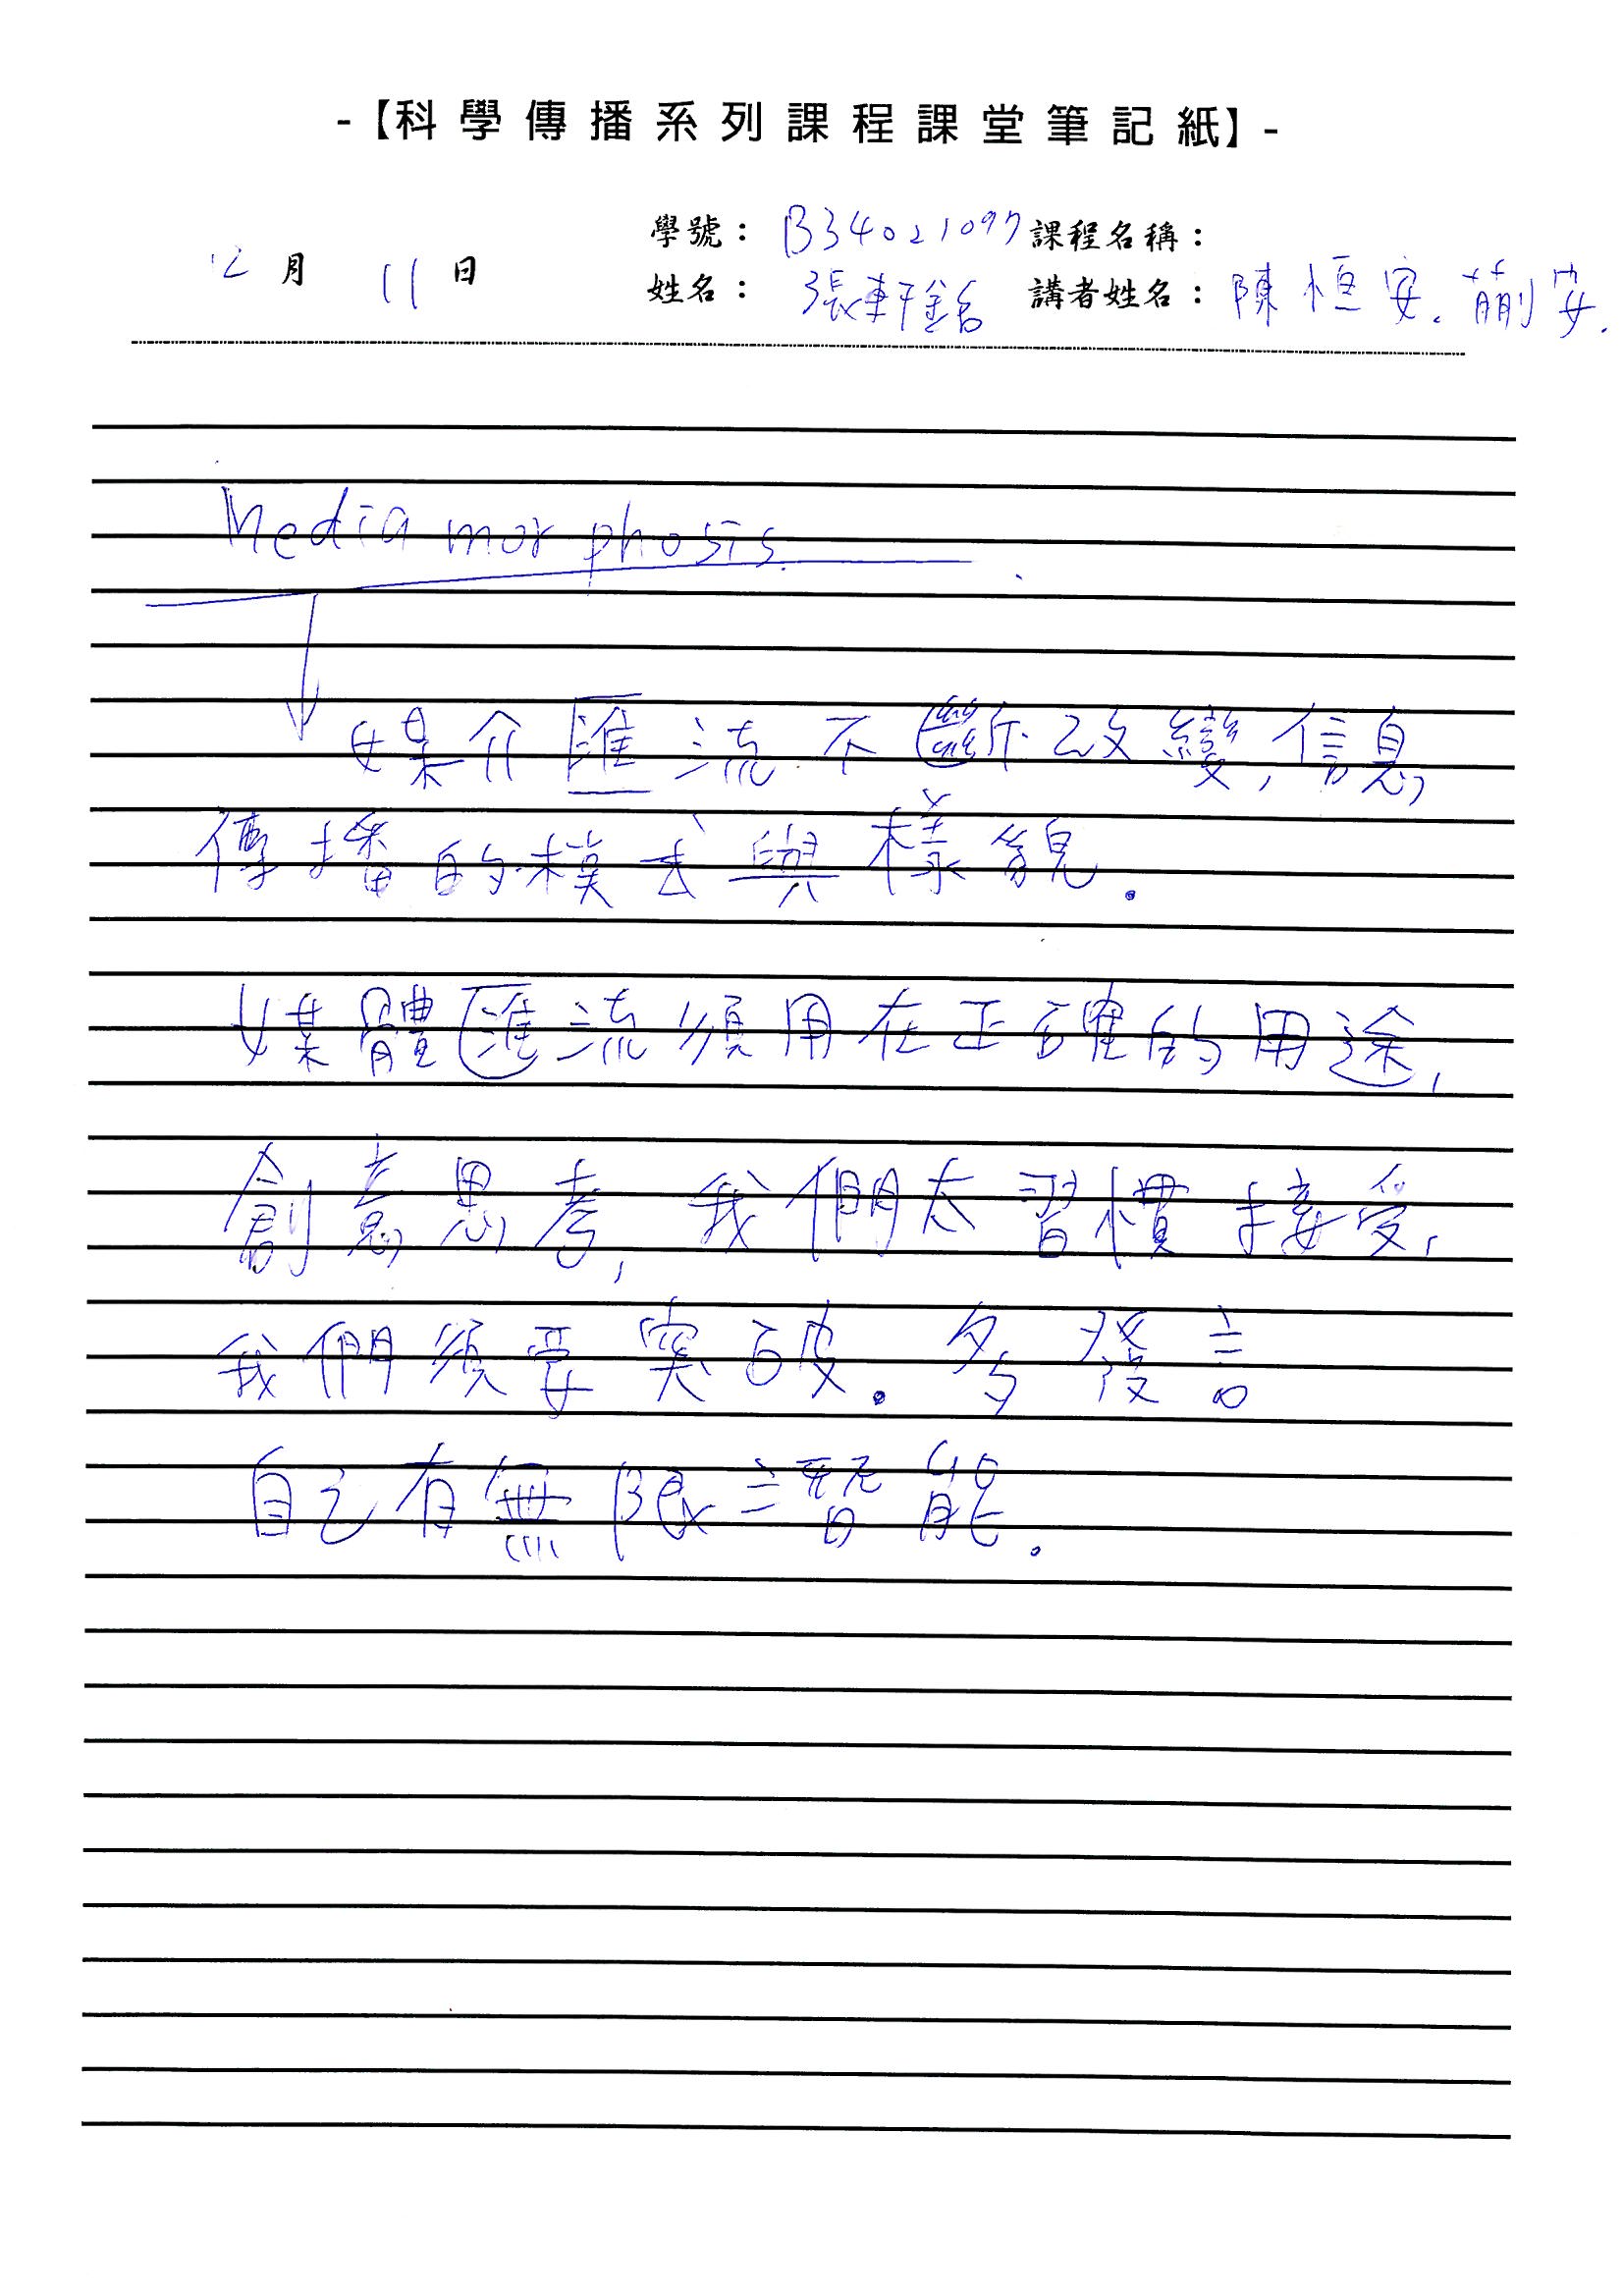 -【科學傳播系列課程課堂筆記紙】-
學號： B34021097 課程名稱：
12月 11日 姓名： 張軒銘 講者姓名： 陳恒安. 蒯安.
Media morphosis.
媒介匯流不斷改變,信息
傳播的模式與樣貌.
媒體匯流須用在正確的用途,
創意思考, 我們太習慣接受,
我們須要突破. 多發言
自己有無限 能.